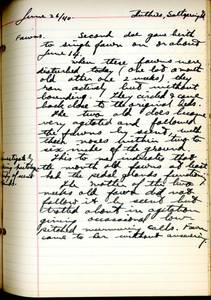 June 26/40.
Fawns. Second doe gave birth
to single fawn on or about
June 14.
When these fawns were
disturbed today (one old a month
old other one 2 weeks) they
ran actively but without
bounding. They circled & came
back close to the original beds.
The two old does became
very agitated and followed
the fawns by scent with
their noses within two to
six inches of the ground.
This to me indicates that
the month old fawns at least
had the pedal glands functioning.
The mother of the two
weeks old fawn did not
follow it by scent but
trotted about in agitation
giving occasional low
pitched murmuring calls. Fawn
came to her without answering.